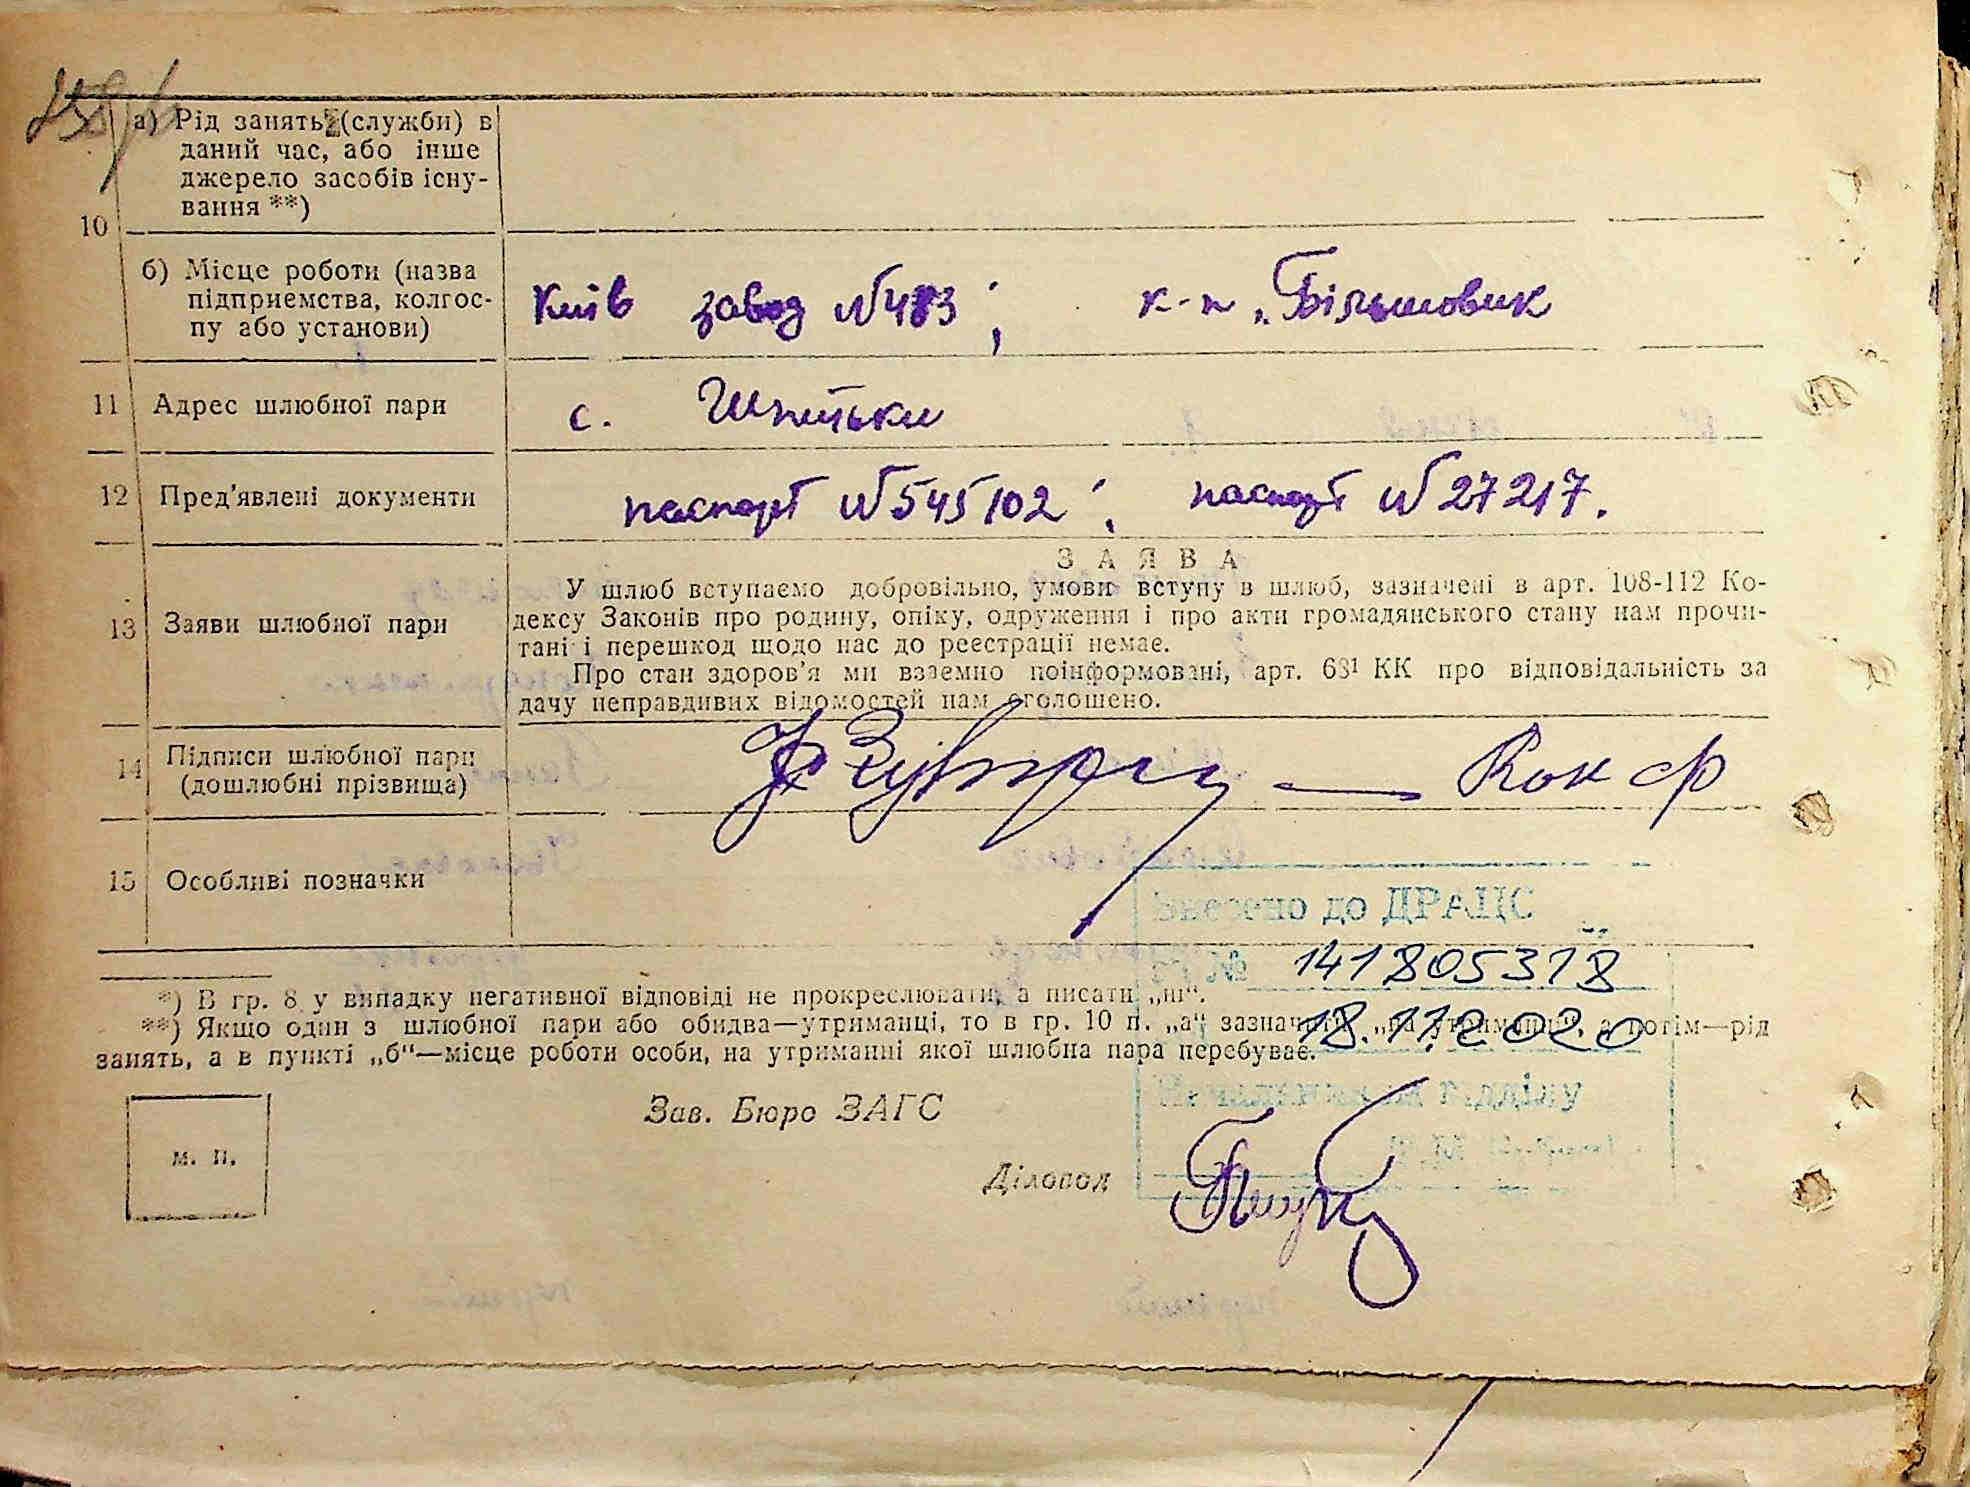 а) Рід занять (служби) в
даний час, або інше
джерело засобів існу-
вання **)
10
б) Місце роботи (назва
підприємства, колгос-
пу або установи)
Київ завод №483; к-п „Більшовик
11 Адрес шлюбної пари
с. Шпитьки
12 Пред’явлені документи
паспорт №545102; паспорт №27217.
13 Заяви шлюбної пари
ЗАЯВА
У шлюб вступаємо добровільно, умови вступу в шлюб, зазначені в арт. 108-112 Ко-
дексу Законів про родину, опіку, одруження і про акти громадянського стану нам прочи-
тані і перешкод щодо нас до реєстрації немає.
Про стан здоров’я ми взаємно поінформовані, арт. 68¹ КК про відповідальність за
дачу неправдивих відомостей нам оголошено.
14 Підписи шлюбної пари
(дошлюбні прізвища)
15 Особливі позначки
Внесено до ДРАЦС
№ 141805318
18.11.2020
Начальник відділу
*) В гр. 8 у випадку негативної відповіді не прокреслювати, а писати „ні“.
**) Якщо один з шлюбної пари або обидва—утриманці, то в гр. 10 п. „а“ зазначити „на утриманні“, а потім—рід
занять, а в пункті „б“—місце роботи особи, на утриманні якої шлюбна пара перебуває.
Зав. Бюро ЗАГС
м. п.
Діловод